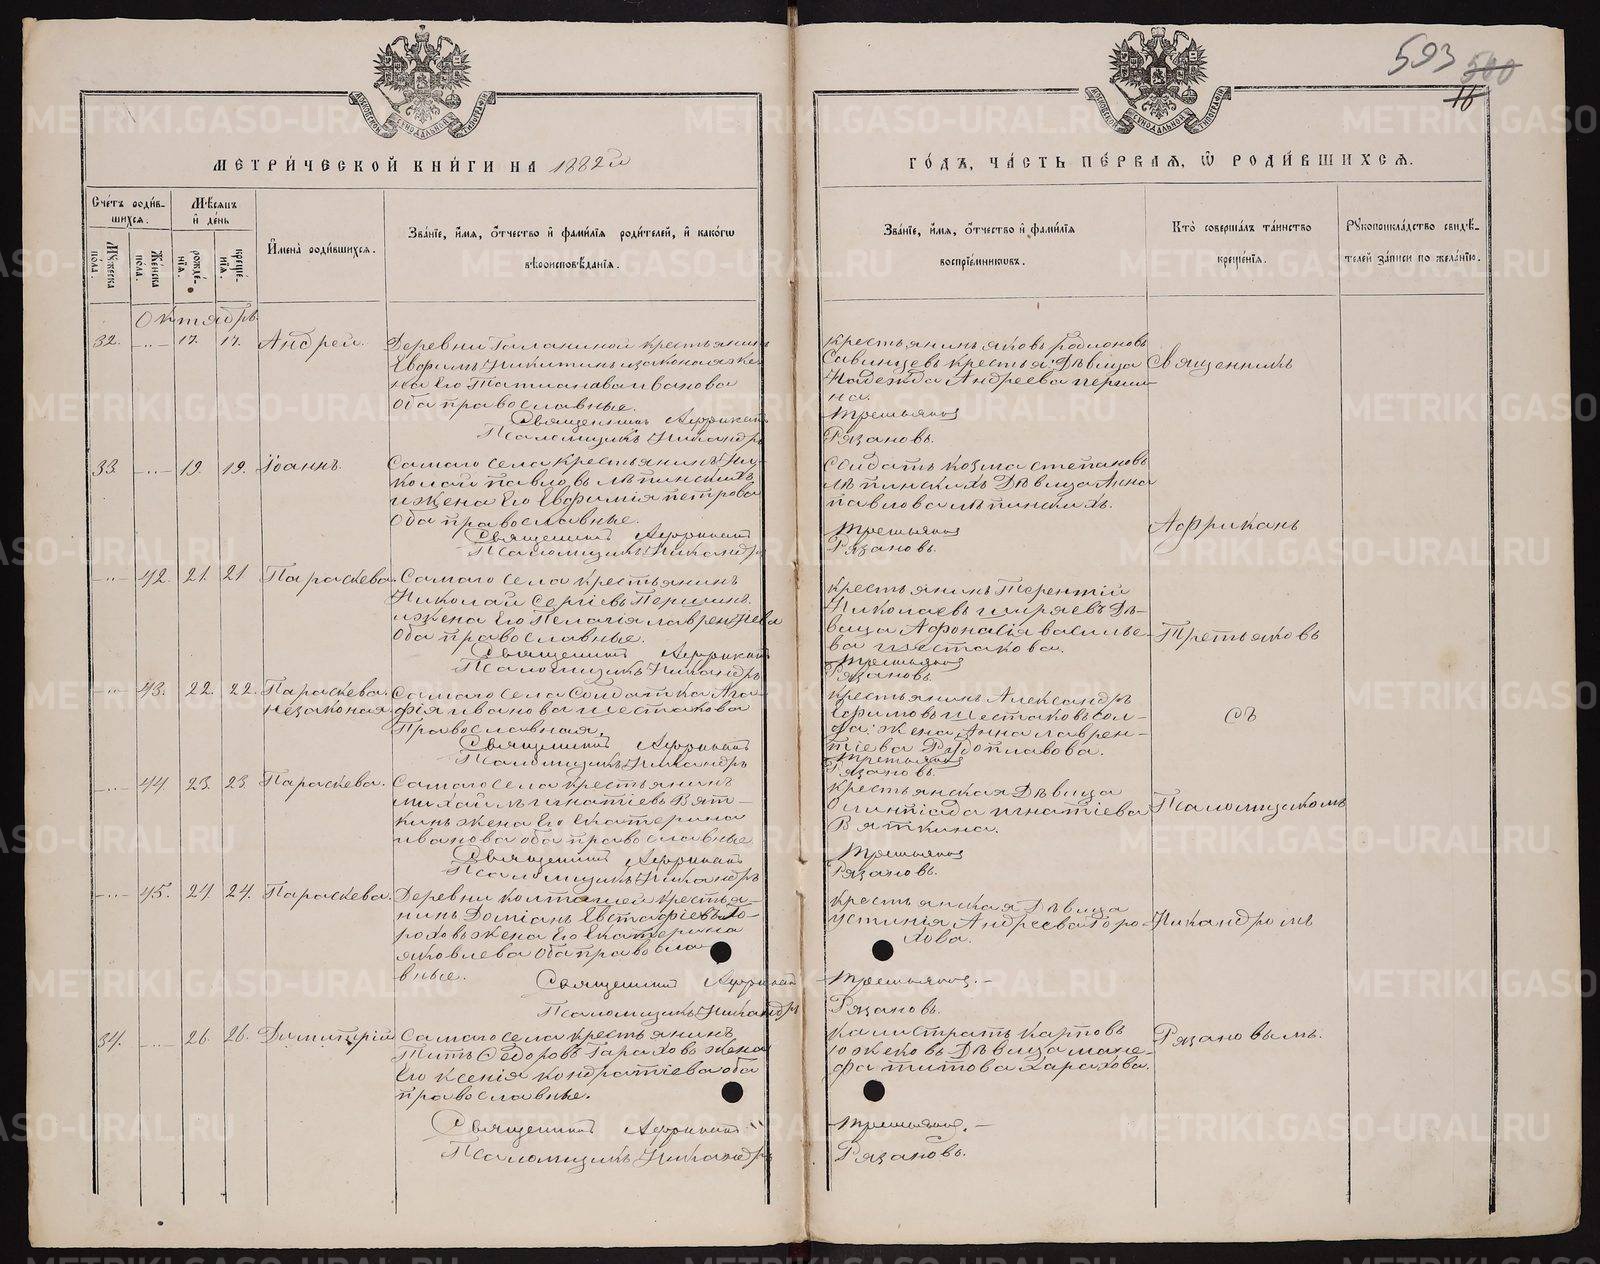 593 500
16
МЕТРИ́ЧЕСКОЙ КНИ́ГИ НА 1882й
ГО́ДЪ, ЧА́СТЬ ПЕ́РВАЯ, Ѡ РОДИ́ВШИХСЯ.
Сче́тъ роди́в-
шихся.
Мꙋ́жеска
по́ла.
Же́нска
по́ла.
Мѣ́сяцъ
и де́нь
рожде́-
нїя.
креще́-
нїя.
И҆мена̀ роди́вшихся.
Зва́нїе, и҆́мя, ѻ҆́тчество и҆ фами́лїя роди́телей, и҆ како́гѡ
вѣроисповѣ́данїя.
Зва́нїе, и҆́мя, ѻ҆́тчество и҆ фами́лїя
воспрїе́мниковъ.
Кто̀ соверша́лъ та́инство
креще́нїя.
Рꙋкоприкла́дство свидѣ́-
телей за́писи по жела́нїю.
Октябрь.
32. -„- 17. 17. Андрей.
Деревни Галаниной крестьянинъ
Евфимъ Никитинъ изаконая же-
на Его Татиана Иванова
Оба православные.
Священникъ Африканъ
Псаломщикъ Никандръ
крестьянинъ Яковъ Родионовъ
Савинцевъ крестья: Дѣвица
Надежда Андреева перши-
на.
Третьяковъ
Рязановъ.
Священникъ
33. -„- 19. 19. Іоаннъ.
Самаго села крестьянинъ Ни-
колай павловъ Лѣпинскихъ
и жена Его Евфимія петрова
Оба православные.
Священникъ Африканъ
Псаломщикъ Никандръ
Солдатъ козма степановъ
Лѣпинскихъ Дѣвица Анна
павлова Лѣпинскихъ.
Третьяковъ
Рязановъ.
Африканъ
-„- 42. 21. 21 Параскева.
Самаго села крестьянинъ
Николай Сергіевъ Першинъ.
и жена Его Пелагія лаврентіева
Оба православные.
Священникъ Африканъ
Псаломщикъ Никандръ
крестьянинъ Терентій
Николаевъ ширяевъ Дѣ-
вица Афонасія василье-
ва шестакова.
Третьяковъ
Рязановъ.
Третьяковъ
-„- 43. 22. 22. Параскева.
незаконая.
Самаго села Солдатка Ага-
фія иванова шестакова
Православная.
Священникъ Африканъ
Псаломщикъ Никандръ
крестьянинъ Александръ
Ефимовъ шестаковъ сол-
да: жена Анна лаврен-
тіева Рудоплавова.
Третьяковъ
Рязановъ.
Съ
-„- 44. 23. 23. Параскева.
Самаго села крестьянинъ
михаилъ игнатіевъ Вят-
кинъ жена Его екатерина
иванова оба православные
Священникъ Африканъ
Псаломщикъ Никандръ
крестьянская Дѣвица
Олимпіада игнатіева
Вяткина.
Третьяковъ
Рязановъ.
Псаломщикомъ
-„- 45. 24. 24. Параскева.
Деревни колташей крестья-
нинъ Доміанъ Евстафіевъ Го-
роховъ жена Его Екатерина
яковлева Оба правосла-
вные.
Священникъ Африканъ
Псаломщикъ Никандръ
крестьянская Дѣвица
устинія Андреева Горо-
хова.
Третьяковъ. -
Рязановъ.
Никандромъ
34. -„- 26. 26. Димитрій
Самаго села крестьянинъ
Титъ Ѳедоровъ Гараховъ жена
Его ксенія кондратіева оба
православные.
Священникъ Африканъ
Псаломщикъ Никандръ
калистратъ карповъ
южековъ Дѣвица мане-
фа титова Харахова.
Третьяковъ. -
Рязановъ.
Рязановымъ.
METRIKI.GASO-URAL.RU